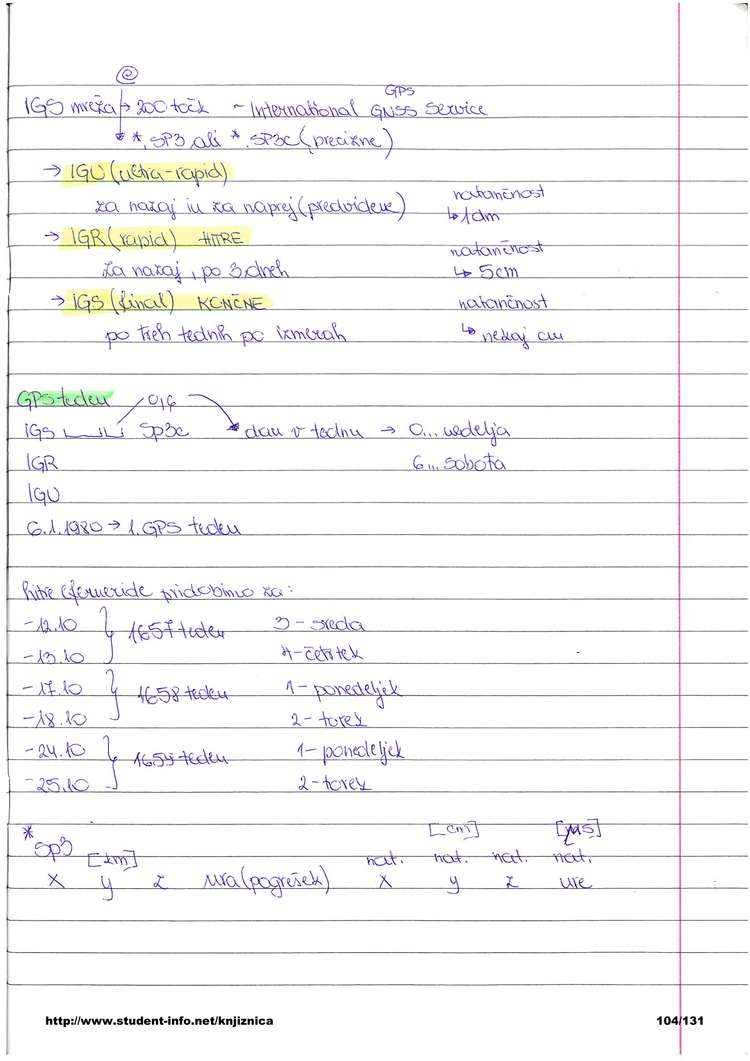 @
GPS
IGS mreža → 200 točk ~ International GNSS Service
*.SP3 ali *.SP3c (precizne)
→ IGU (ultra-rapid)
za nazaj in za naprej (predvidene)
natančnost
↳ 1dm
→ IGR (rapid) HITRE
za nazaj, po 3.dneh
natančnost
↳ 5cm
→ IGS (final) KONČNE
natančnost
po treh tednih po izmerah
↳ nekaj cm
GPS teden
0,6
IGS SP3c dan v tednu → 0... nedelja
IGR 6... sobota
IGU
6.1.1980 → 1. GPS teden
hitre efemeride pridobimo za:
-12.10 } 1657 teden 3 - sreda
-13.10 4 - četrtek
-17.10 } 1658 teden 1 - ponedeljek
-18.10 2 - torek
-24.10 } 1659 teden 1 - ponedeljek
-25.10 2 - torek
* [cm] [μs]
SP3 [km] nat. nat. nat. nat.
x y z ura (pogrešek) x y z ure
http://www.student-info.net/knjiznica 104/131